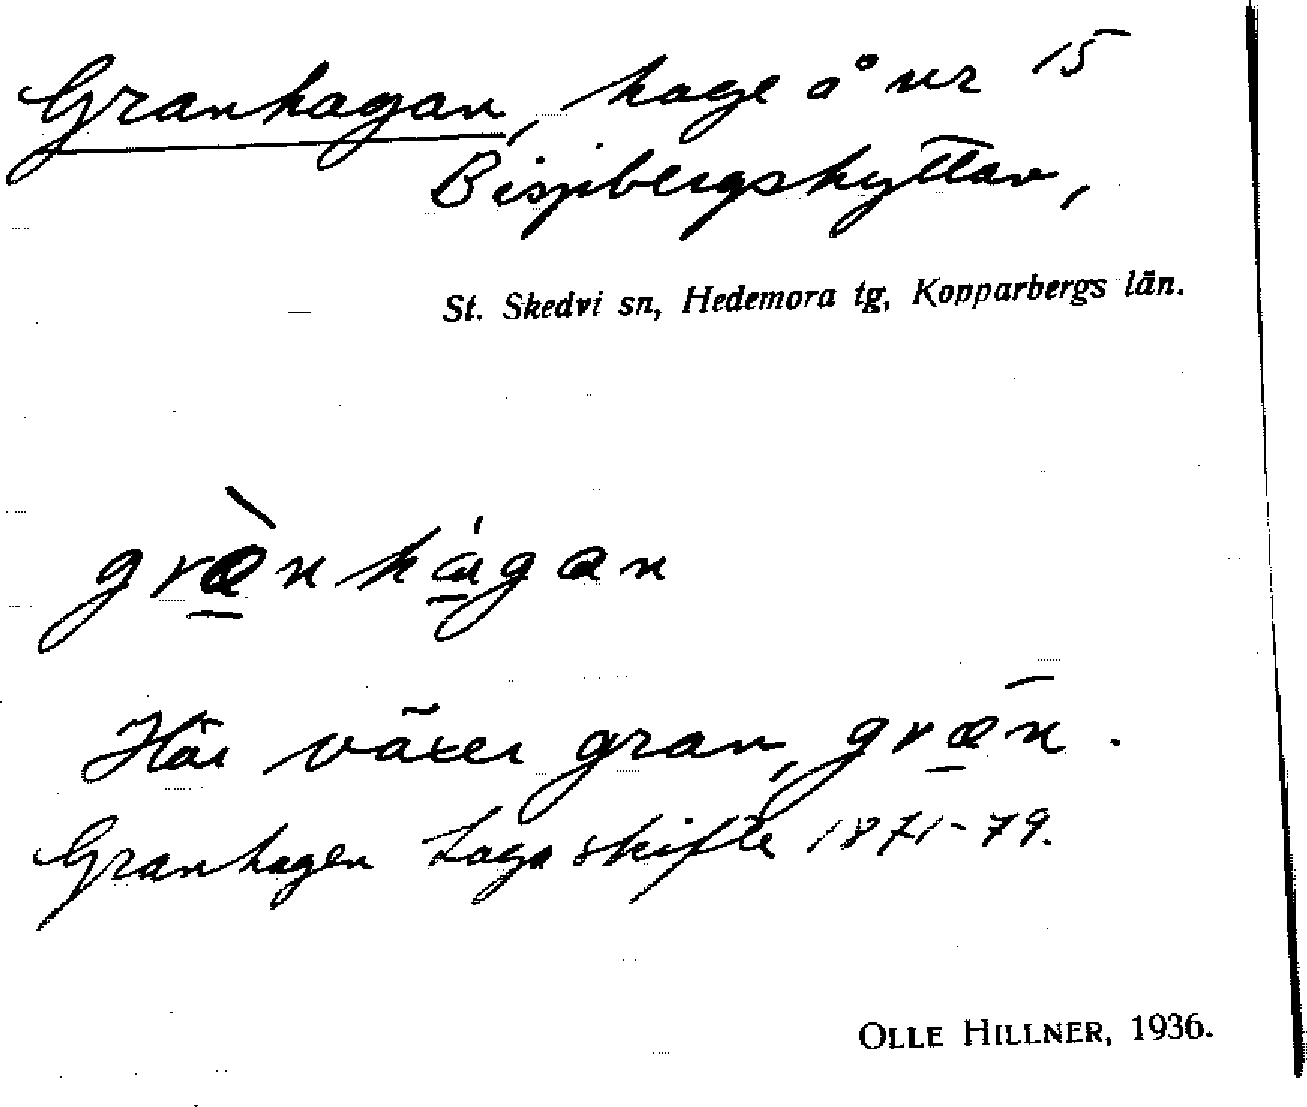 Granhagan, hage å nr 15
Bispbergshyttan,
St. Skedvi sn, Hedemora tg, Kopparbergs län.
græ̀nhágan
Här växer gran, græn.
Granhagen Laga skifte 1871-79.
OLLE HILLNER, 1936.